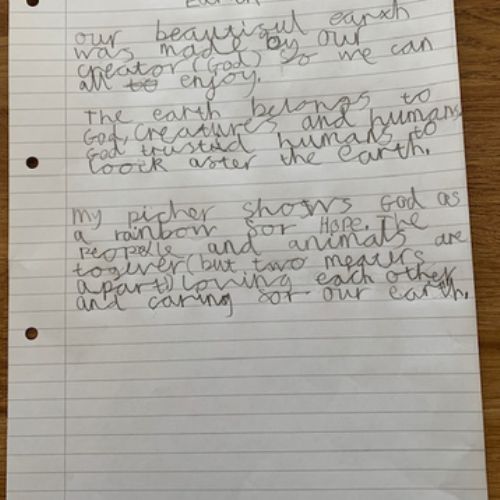 our beautiful earth
was made by our
creator (God) so we can
all to enjoy.
The earth belongs to
God, Creatures and humans
God trusted humans to
look aster the earth.
my picher shows God as
a rainbow sor Hope. The
people and animals are
togever (but two meters
apart) loving each other
and caring sor our earth.